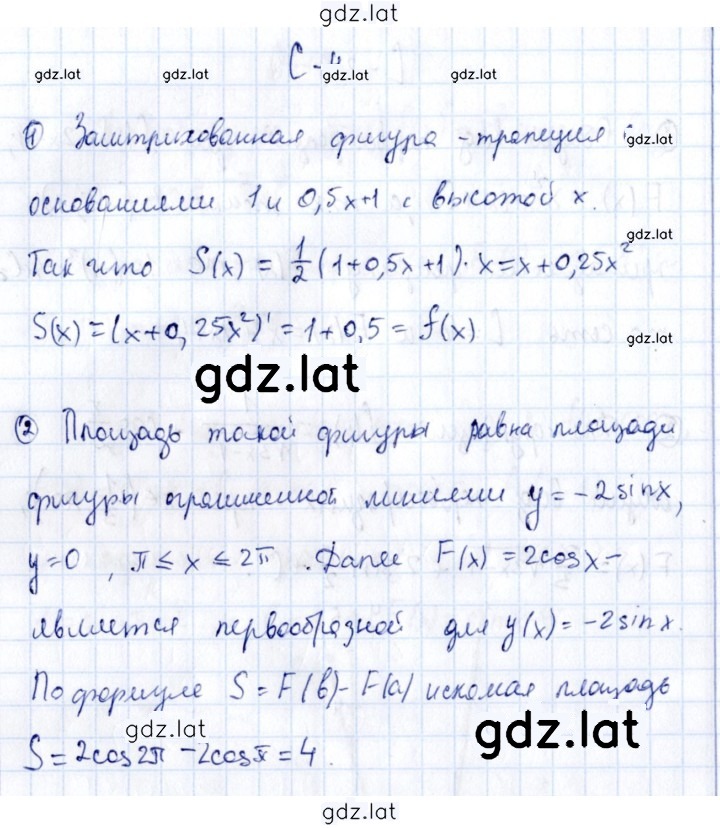 gdz.lat
С-11
gdz.lat gdz.lat gdz.lat gdz.lat
① Заштрихованная фигура - трапеция с
gdz.lat
основаниями 1 и 0,5x+1 с высотой x.
gdz.lat
Так что S(x) = 1/2 (1+0,5x+1)·x=x+0,25x²
S(x)=(x+0,25x²)'=1+0,5=f(x)
gdz.lat
gdz.lat
② Площадь такой фигуры равна площади
фигуры ограниченной линиями y=-2sinx,
y=0, π≤x≤2π. Далее F(x)=2cosx-
является первообразной для y(x)=-2sinx.
По формуле S=F(b)-F(a) искомая площадь
gdz.lat gdz.lat
S=2cos2π-2cosπ=4.
gdz.lat